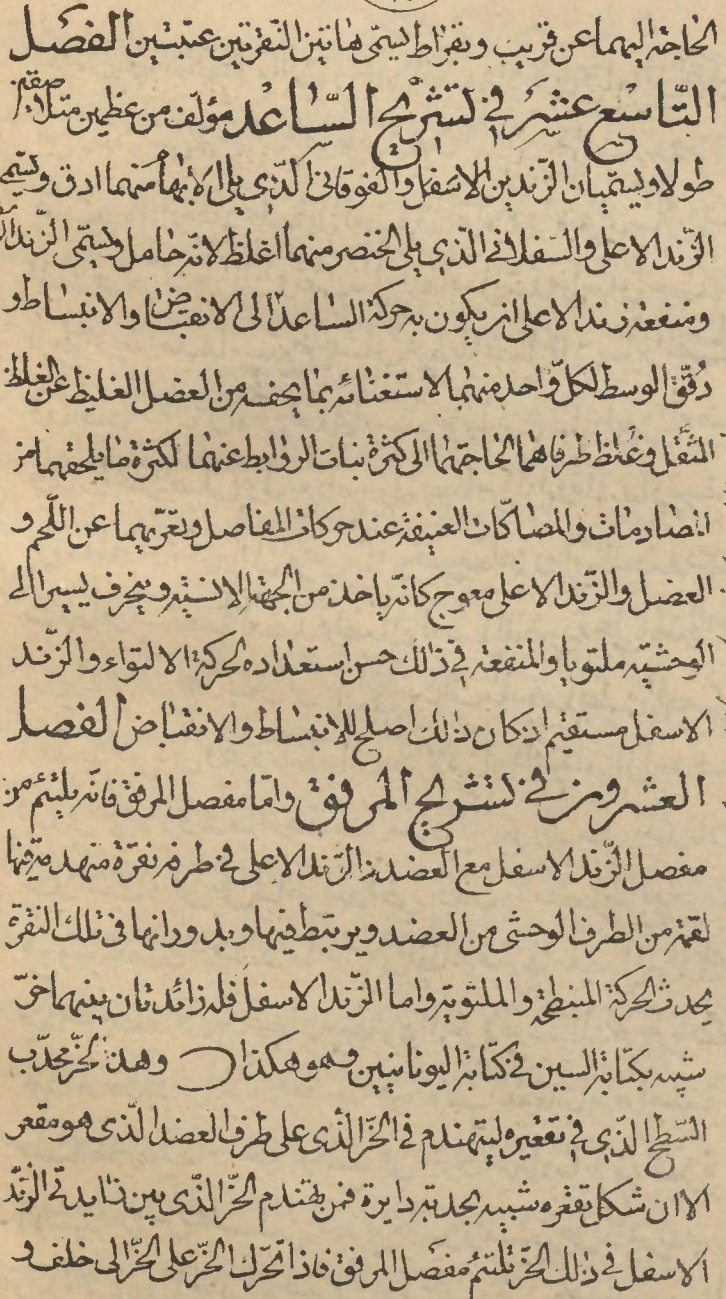 الحاجة اليهما عن قريب وبقراط يسمّى هاتين النقرتين عتبتين الفصل
التّاسع عشر في تشريح السّاعد مؤلّف من عظمين متلاصقين
طولا ويسمّيان الزّندين الاسفل والفوقانى الّذى يلى الابهام منهما ادق ويسمى
الزّند الاعلى والسفلانى الّذى يلى الخنصر منهما اغلظ لانّه حامل ويسمّى الزّند
ومنفعة زند الاعلى ان يكون به حركة الساعد الى الانقباض والانبساط و
دُقّق الوسط لكلّ واحد منهما لاستغنائه بما يحفه من العضل الغليظ عن الغلظ
المثقل وغلظ طرفاهما لحاجتهما الى كثرة نبات الروابط عنهما لكثرة ما يلحقهما من
المصادمات والمصاكّات العنيفة عند حركات المفاصل وتعرّيهما عن اللّحم و
العضل والزّند الاعلى معوج كانّه ياخذ من الجهة الانسيّة وينحرف يسيرا الى
الوحشيّة ملتويا والمنفعة فى ذلك حسن استعداده لحركة الالتواء والزّند
الاسفل مستقيم اذ كان ذلك اصلح للانبساط والانقباض الفصل
العشرون في تشريح المرفق وامّا مفصل المرفق فانّه يلتئم من
مفصل الزّند الاسفل مع العضد الزّند الاعلى فى طرفه نقرة مهندمة فيها
لقمة من الطرف الوحشى من العضد ويرتبط فيها وبدورانها فى تلك النقرة
يحدث الحركة المنبطحة والملتوية واما الزّند الاسفل فله زائدتان بينهما حزّ
شبيه بكتابة السين فى كتابة اليونانيين وهو هكذا C وهذا الحزّ محدّب
السّطح الّذى فى تقعيره ليتهندم فى الحزّ الّذى على طرف العضد الّذى هو مقعر
الا ان شكل تقعره شبيه بحدبة دايرة فمن تهندم الحزّ الّذى بين زايدتى الزّند
الاسفل فى ذلك الحزّ تلتئم مفصل المرفق فاذا تحرّك الحزّ على الحزّ الى خلف و